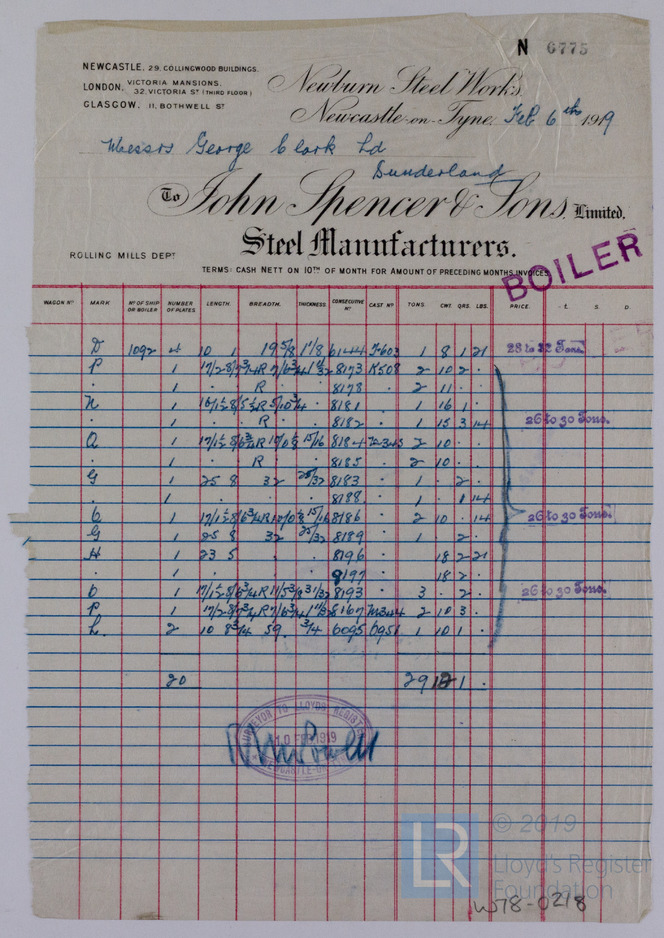 N 6775
NEWCASTLE, 29, COLLINGWOOD BUILDINGS.
LONDON, VICTORIA MANSIONS, 32, VICTORIA ST (THIRD FLOOR)
GLASGOW, 11, BOTHWELL ST
Newburn Steel Works,
Newcastle-on-Tyne, Feb 6th 1919
Messrs George Clark Ld
Sunderland
To John Spencer & Sons, Limited,
Steel Manufacturers.
ROLLING MILLS DEPT
TERMS: CASH NETT ON 10TH OF MONTH FOR AMOUNT OF PRECEDING MONTHS INVOICES
BOILER
WAGON NO MARK NO OF SHIP OR BOILER NUMBER OF PLATES LENGTH. BREADTH. THICKNESS CONSECUTIVE NO CAST NO TONS. CWT. QRS. LBS. PRICE. £. S. D.
D 1092 4 10 1 19 5/8 1 1/8 6144 1 8 1 21 28 to 32 Tons.
P 1 8173 K508 2 10 2 .
. 1 R 8178 2 11 . .
N 1 8181 1 16 1 .
. 1 R 8182 1 15 3 14 26 to 30 Tons.
Q 1 15/16 8184 2 10 . .
. 1 R 8185 2 10 . .
G 1 25 8 32 25/32 8183 1 . 2 .
. 1 8188 1 . 1 14
1 15/16 8186 2 10 . 14 26 to 30 Tons.
G 1 25 8 32 25/32 8189 1 . 2 .
H 1 23 5 8196 18 2 21
. 1 8197 18 2 .
1 31/32 8193 3 . 2 . 26 to 30 Tons.
P 1 8167 M344 2 10 3 .
L. 2 10 8 3/4 59 3/4 6095 1 10 1 .
20 29 12 1 .
SURVEYOR TO LLOYDS REGISTER
10 FEB 1919
NEWCASTLE-ON-
LR © 2019
Lloyd's Register
Foundation
W78-0218